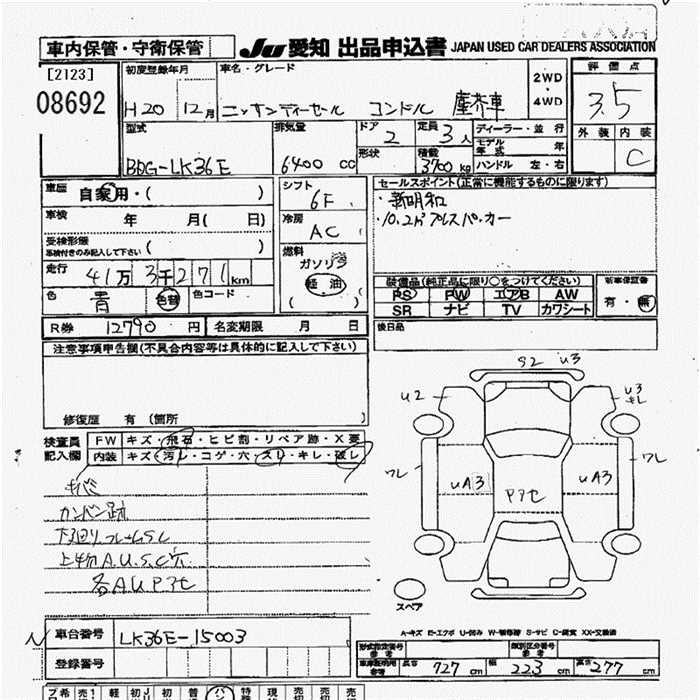 車内保管・守衛保管 JU 愛知 出品申込書 JAPAN USED CAR DEALERS ASSOCIATION
[2123]
08692
初度登録年月 車名・グレード 2WD ・ 4WD 評価点
H20 12月 ニッサンディーゼル コンドル 塵芥車 3.5
型式 排気量 ドア 定員 ディーラー・並行 外装 内装
BDG-LK36E 6400 CC 2 3人 モデル年式 年 C
形状 積載 3700kg ハンドル 左・右
車歴 自家用・( ) シフト 6F セールスポイント(正常に機能するものに限ります)
車検 年 月( 日) 冷房 AC ・新明和
受検形態 車検付きのみ記入して下さい ( ) 燃料 ガソリン 軽油 ( ) ・10.2㎥プレスパッカー
走行 41万3千271km
色 青 色替 色コード
装備品(純正品に限り○をつけてください) 新車保証書
PS PW エアB AW 有・無
SR ナビ TV カワシート
R券 12790円 名変期限 月 日 後日品
注意事項申告欄(不具合内容等は具体的に記入して下さい)
修復歴 有(箇所 )
検査員記入欄 FW キズ・飛石・ヒビ割・リペア跡・X要
内装 キズ・汚レ・コゲ・穴・スレ・キレ・破レ
カンバン跡
下回り、フレームSC
上物A.U.S.C穴
各AUPアセ
S2 U3
U2 U3 キレ
ワレ ワレ
UA3 Pアセ UA3
スペア
A-キズ E-エクボ U-凹み W-補修跡 S-サビ C-腐食 XX-交換済
車台番号 LK36E-15003
登録番号
型式指定番号 参考 類別区分番号 参考
車庫証明用 参考 長さ 727cm 幅 223cm 高さ 277cm